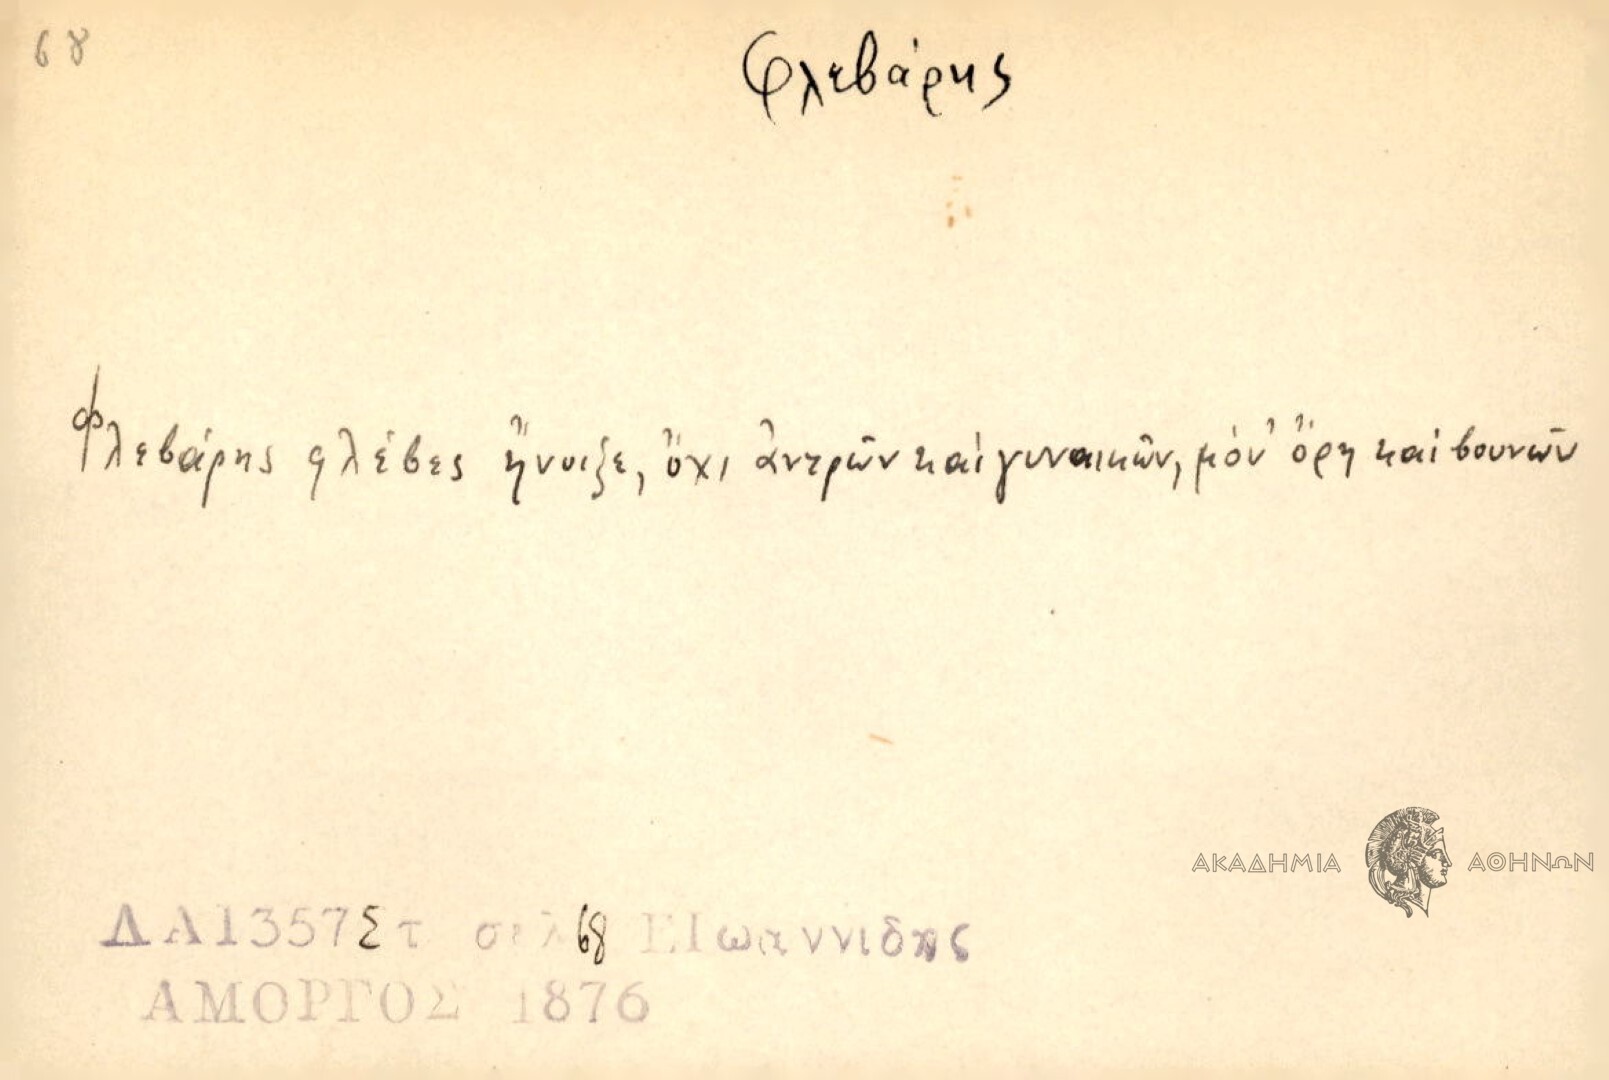 68
Φλεβάρης
Φλεβάρης φλέβες ἤνοιξε, ὄχι ἀντρῶν καὶ γυναικῶν, μόν' ὄρη καὶ βουνῶν
ΑΚΑΔΗΜΙΑ ΑΘΗΝΩΝ
ΔΑ1357Στ σελ 68 ΕΙωαννιδης
ΑΜΟΡΓΟΣ 1876